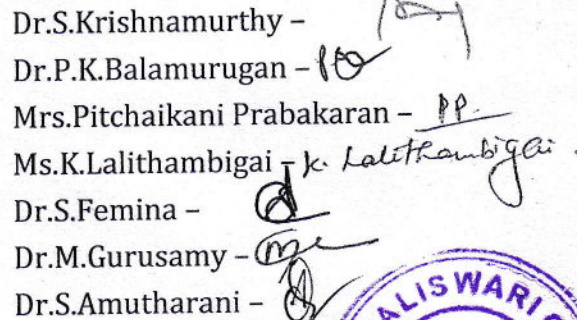 Dr.S.Krishnamurthy –
Dr.P.K.Balamurugan –
Mrs.Pitchaikani Prabakaran – PP.
Ms.K.Lalithambigai – K. Lalithambigai
Dr.S.Femina –
Dr.M.Gurusamy –
Dr.S.Amutharani –
ALISWARI